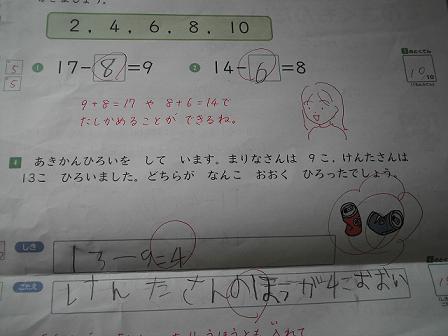 2 , 4 , 6 , 8 , 10
5
5
❶ 17−8=9
❷ 14−6=8
10
/10
9+8=17 や 8+6=14で
たしかめることが できるね。
4 あきかんひろいを して います。まりなさんは 9こ、けんたさんは
13こ ひろいました。どちらが なんこ おおく ひろったでしょう。
しき 13−9=4
こたえ けんたさんのほうが4こおおい